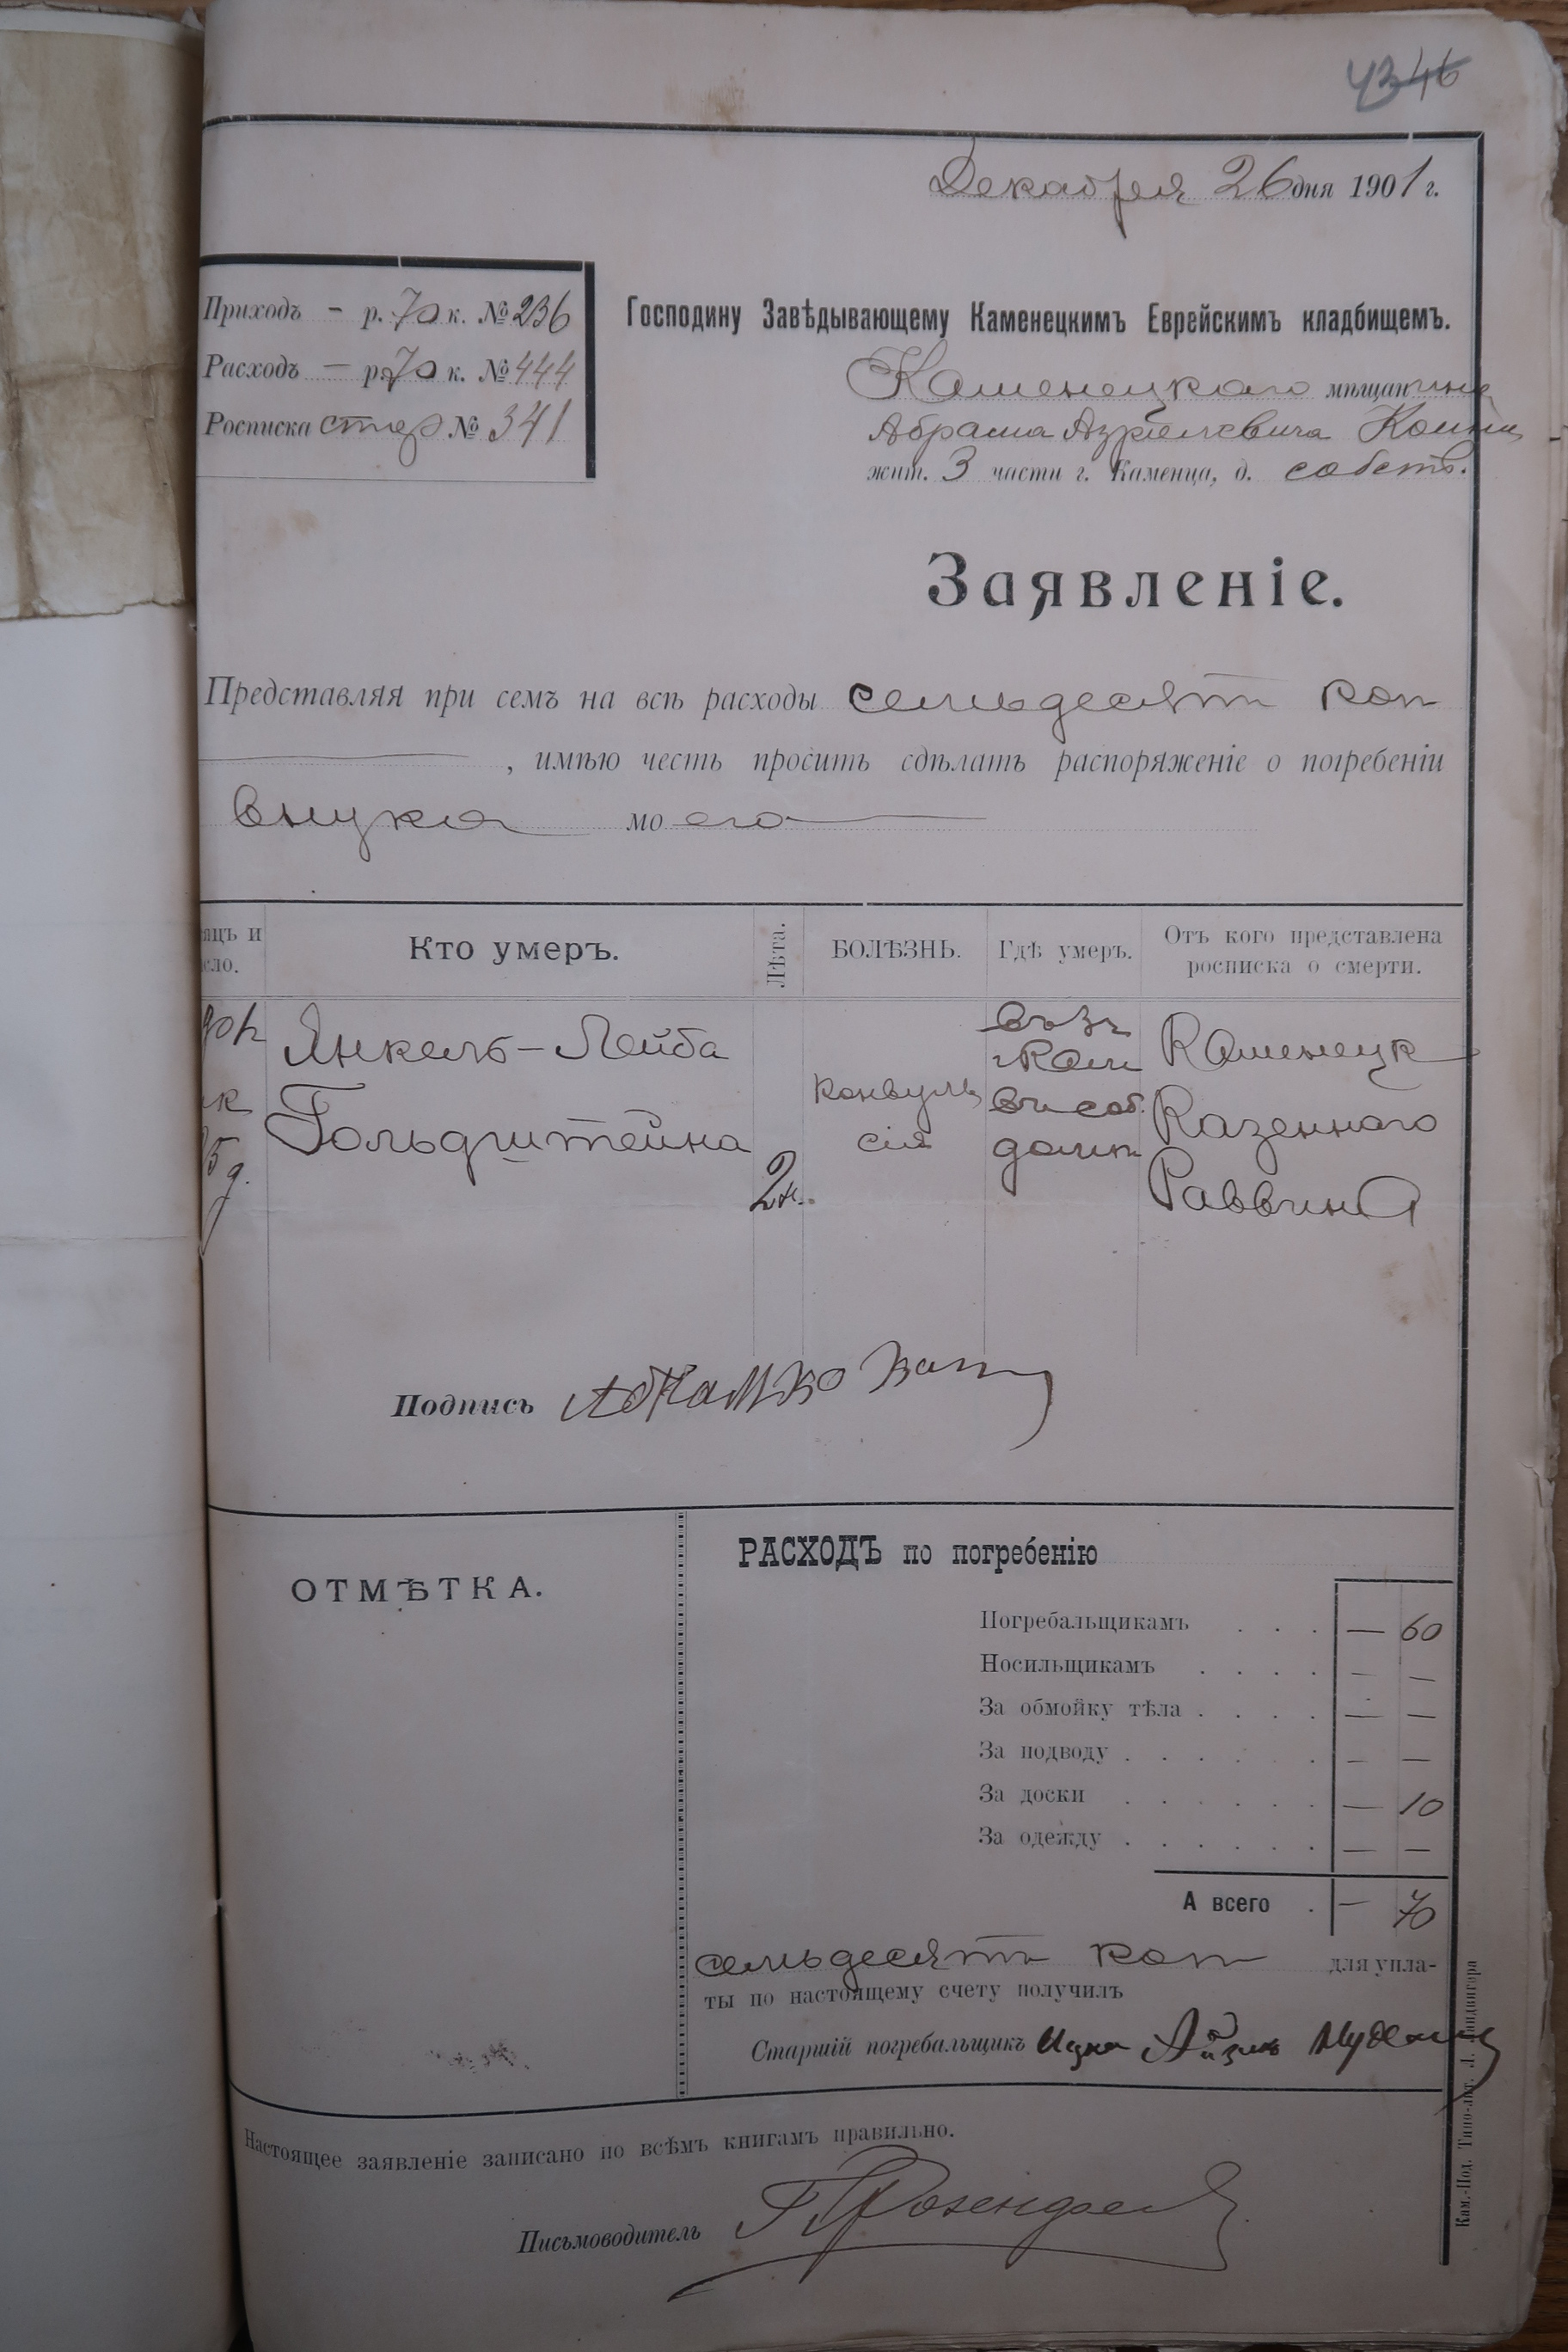 Декабря 26 дня 1901 г.
Приходъ — р. 70 к. № 236
Расходъ — р. 70 к. № 444
Росписка стар № 341
Господину Завѣдывающему Каменецкимъ Еврейскимъ кладбищемъ.
Каменецкаго мѣщанина
Абрама Азрiелевича
жит. 3 части г. Каменца, д. собств.
Заявленіе.
Представляя при семъ на всѣ расходы семьдесятъ коп
, имѣю честь просить сдѣлать распоряженіе о погребеніи
внука моего
яцъ и
сло.
Кто умеръ.
Лѣта.
БОЛѢЗНЬ.
Гдѣ умеръ.
Отъ кого представлена
росписка о смерти.
Янкель-Лейба
Гольдштейна
конвуль
сія
въ соб.
домѣ
Каменецк
Казеннаго
Раввина
Подпись
ОТМѢТКА.
РАСХОДЪ по погребенію
Погребальщикамъ . . . — 60
Носильщикамъ . . . . — —
За обмойку тѣла . . . . — —
За подводу . . . . . . — —
За доски . . . . . . — 10
За одежду . . . . . . — —
А всего . — 70
семьдесятъ коп для упла-
ты по настоящему счету получилъ
Старшій погребальщикъ Ицко Айзикъ
Настоящее заявленіе записано по всѣмъ книгамъ правильно.
Письмоводитель Г Розенфельд
Кам.-Под. Типо-лит. Л.